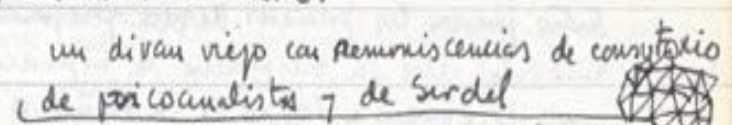 un divan viejo con remoniscencias de consultorio
de psicoanalistas y de burdel